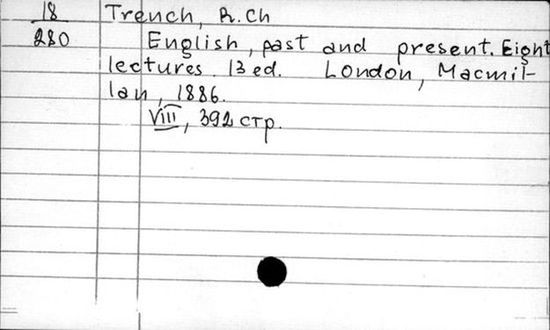 18 Trench, R.Ch
280 English, past and present. Eight
lectures. 13 ed. London, Macmil-
lan, 1886.
VIII, 392 стр.